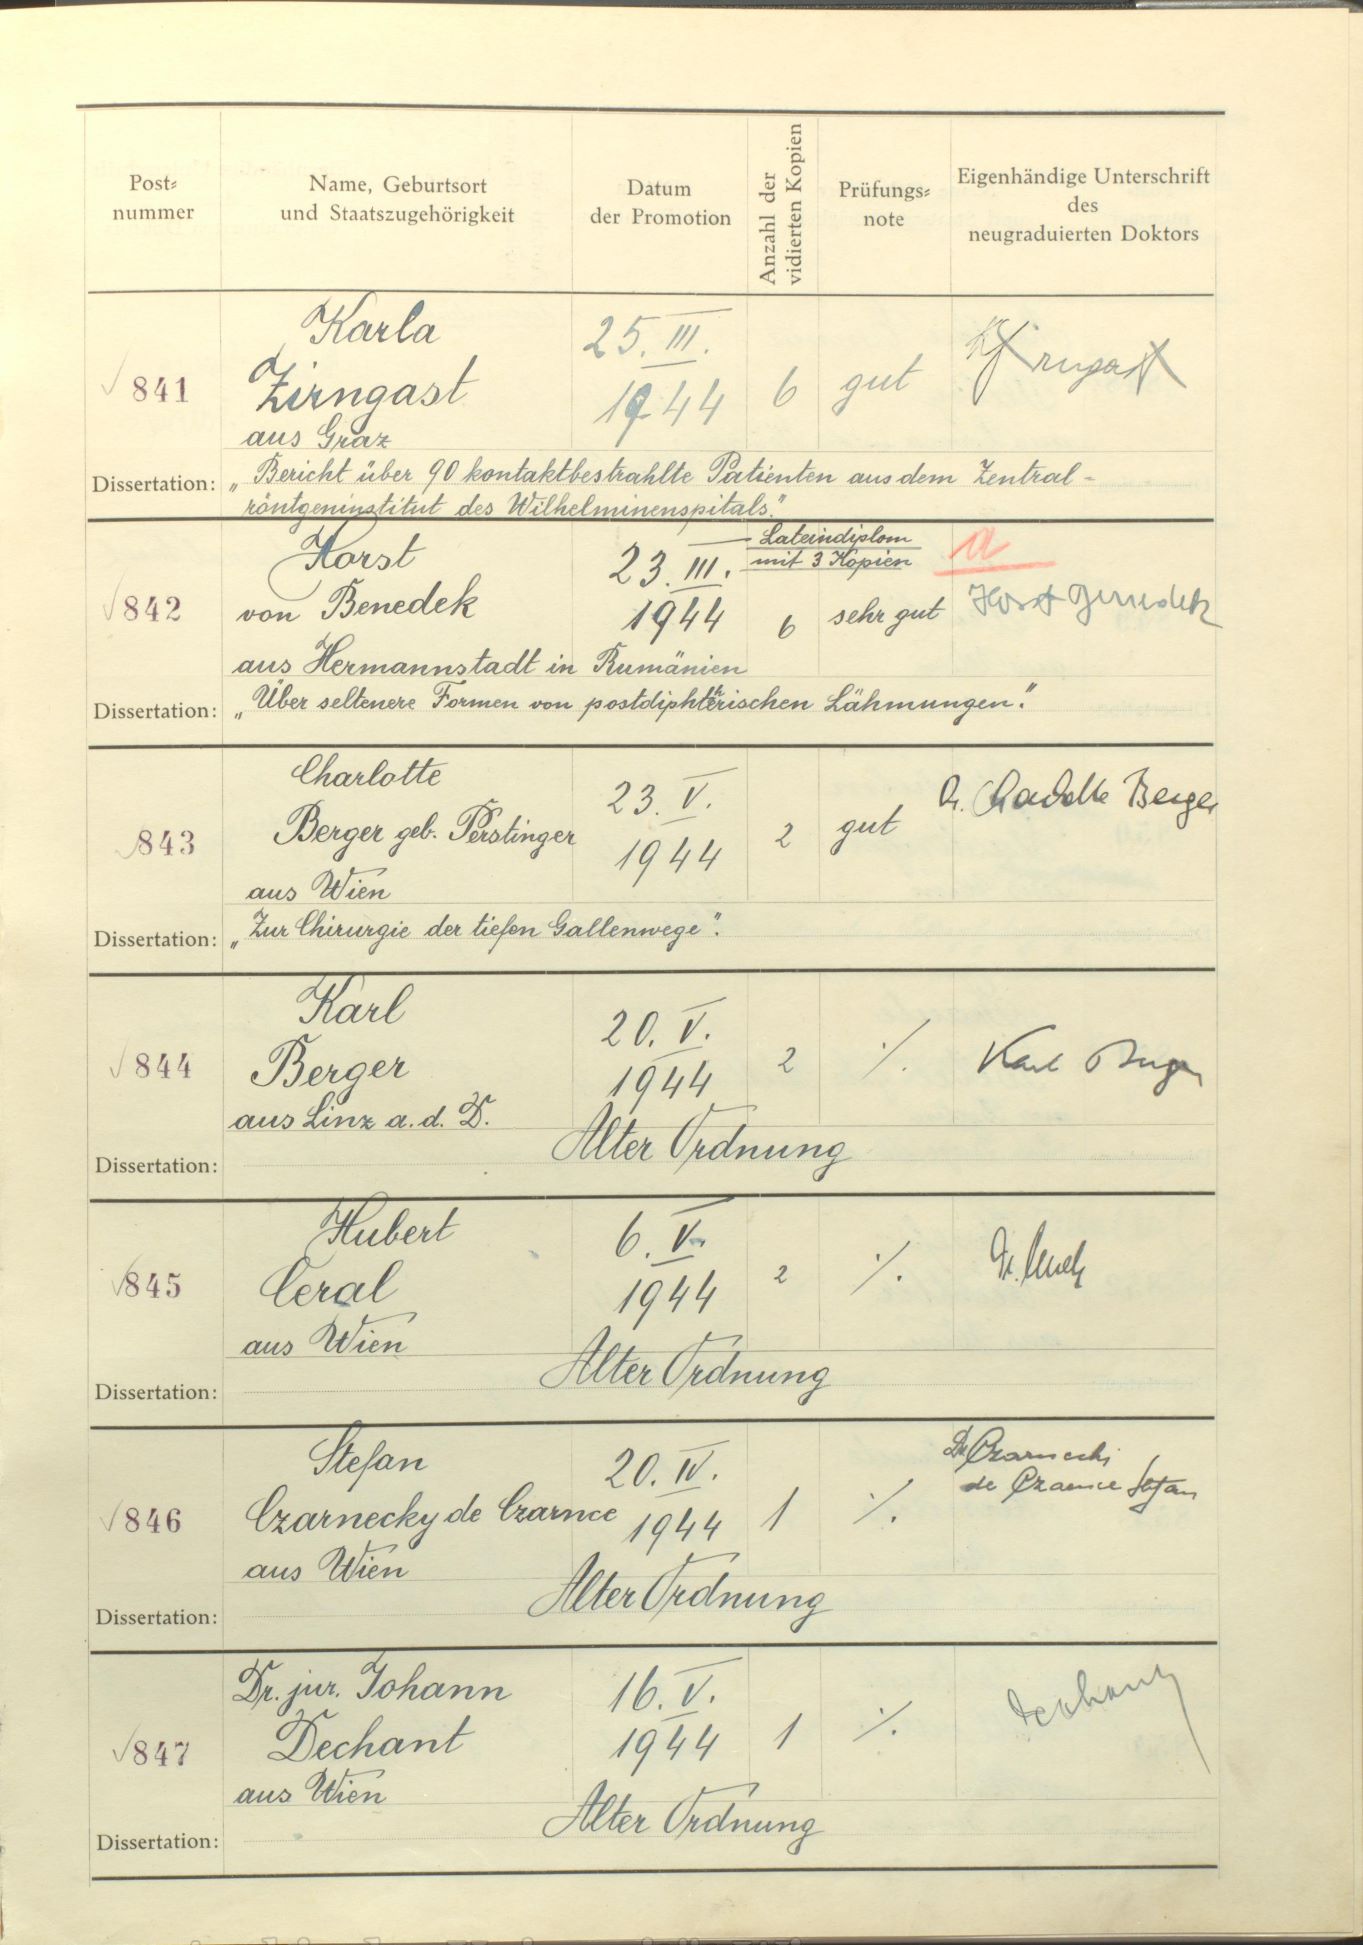 Post=
nummer
Name, Geburtsort
und Staatszugehörigkeit
Datum
der Promotion
Anzahl der
vidierten Kopien
Prüfungs=
note
Eigenhändige Unterschrift
des
neugraduierten Doktors
841
Karla
Zirngast
aus Graz
25. III.
1944
6
gut
Zirngast
Dissertation: „Bericht über 90 kontaktbestrahlte Patienten aus dem Zentral-
röntgeninstitut des Wilhelminenspitals."
842
Horst
von Benedek
aus Hermannstadt in Rumänien
23. III.
1944
Lateindiplom
mit 3 Kopien
6
sehr gut
a
Horst Benedek
Dissertation: „Über seltenere Formen von postdiphtherischen Lähmungen."
843
Charlotte
Berger geb. Perstinger
aus Wien
23. V.
1944
2
gut
Dr. Charlotte Berger
Dissertation: „Zur Chirurgie der tiefen Gallenwege".
844
Karl
Berger
aus Linz a. d. D.
20. V.
1944
2
./.
Karl Berger
Dissertation: Alter Ordnung
845
Hubert
Ceral
aus Wien
6. V.
1944
2
./.
Dr.
Dissertation: Alter Ordnung
846
Stefan
Czarnecky de Czarnce
aus Wien
20. IV.
1944
1
./.
Dr. Czarnecki
de Czarnce Stefan
Dissertation: Alter Ordnung
847
Dr. jur. Johann
Dechant
aus Wien
16. V.
1944
1
./.
Dechant
Dissertation: Alter Ordnung